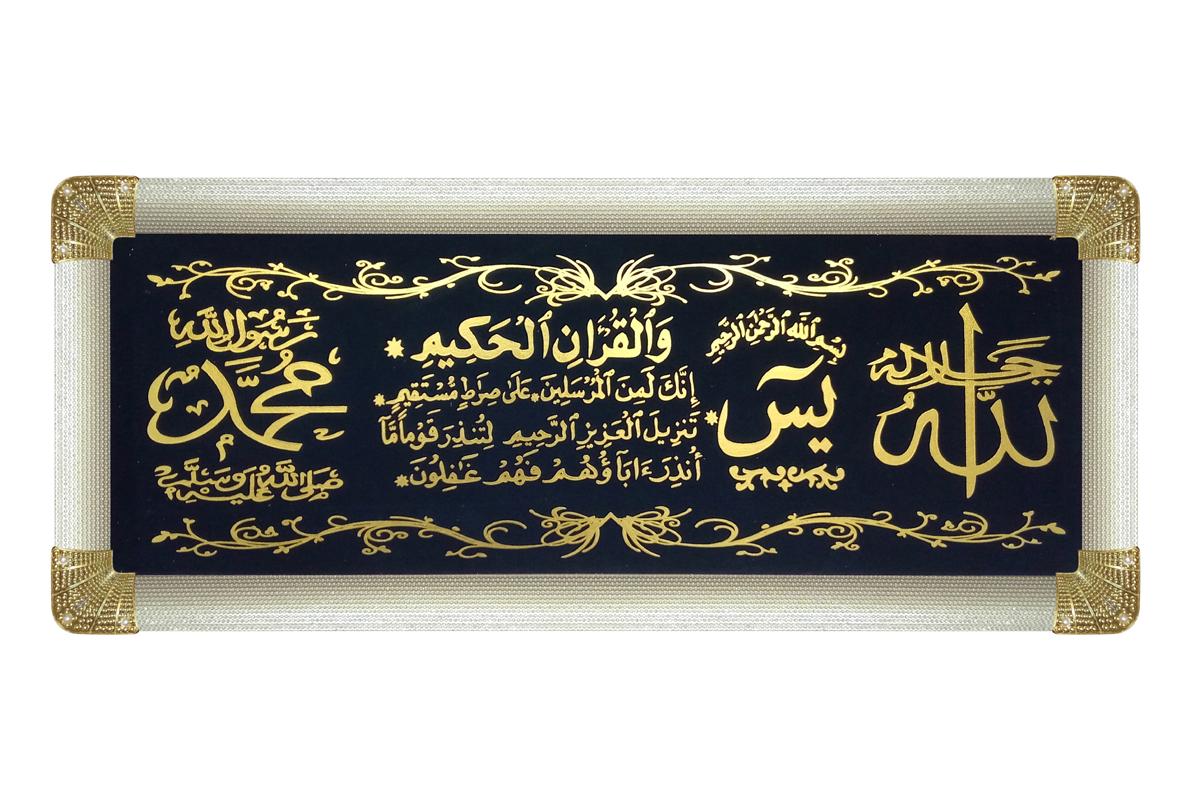 جل جلاله
الله
بسم الله الرحمن الرحيم
يسٓ
وَٱلْقُرْءَانِ ٱلْحَكِيمِ
إِنَّكَ لَمِنَ ٱلْمُرْسَلِينَ * عَلَىٰ صِرَٰطٍ مُّسْتَقِيمٍ *
تَنزِيلَ ٱلْعَزِيزِ ٱلرَّحِيمِ لِتُنذِرَ قَوْمًا مَّآ
أُنذِرَ ءَابَآؤُهُمْ فَهُمْ غَٰفِلُونَ *
رسول الله
محمد
صلى الله عليه وسلم